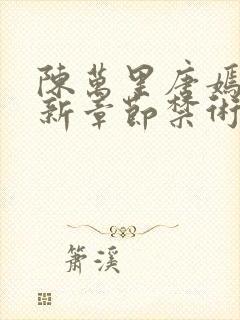 陳萬里唐嫣
新章節禁術
簫溪